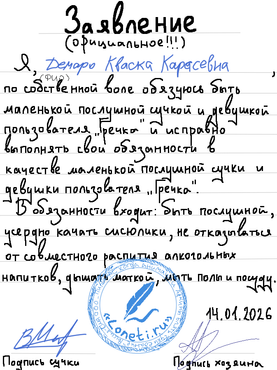 Заявление
(официальное!!!)
Я, Демаро Кваска Карасевна,
(ФИО)
по собственной воле обязуюсь быть
маленькой послушной сучкой и девушкой
пользователя „гречка" и исправно
выполнять свои обязанности в
качестве маленькой послушной сучки и
девушки пользователя „Гречка".
В обязанности входит: быть послушной,
усердно качать сисюлики, не отказываться
от совместного распития алкогольных
напитков, дышать маткой, мыть полы и посуду.
«Loneti.ru»
14.01.2026
Подпись сучки
Подпись хозяина